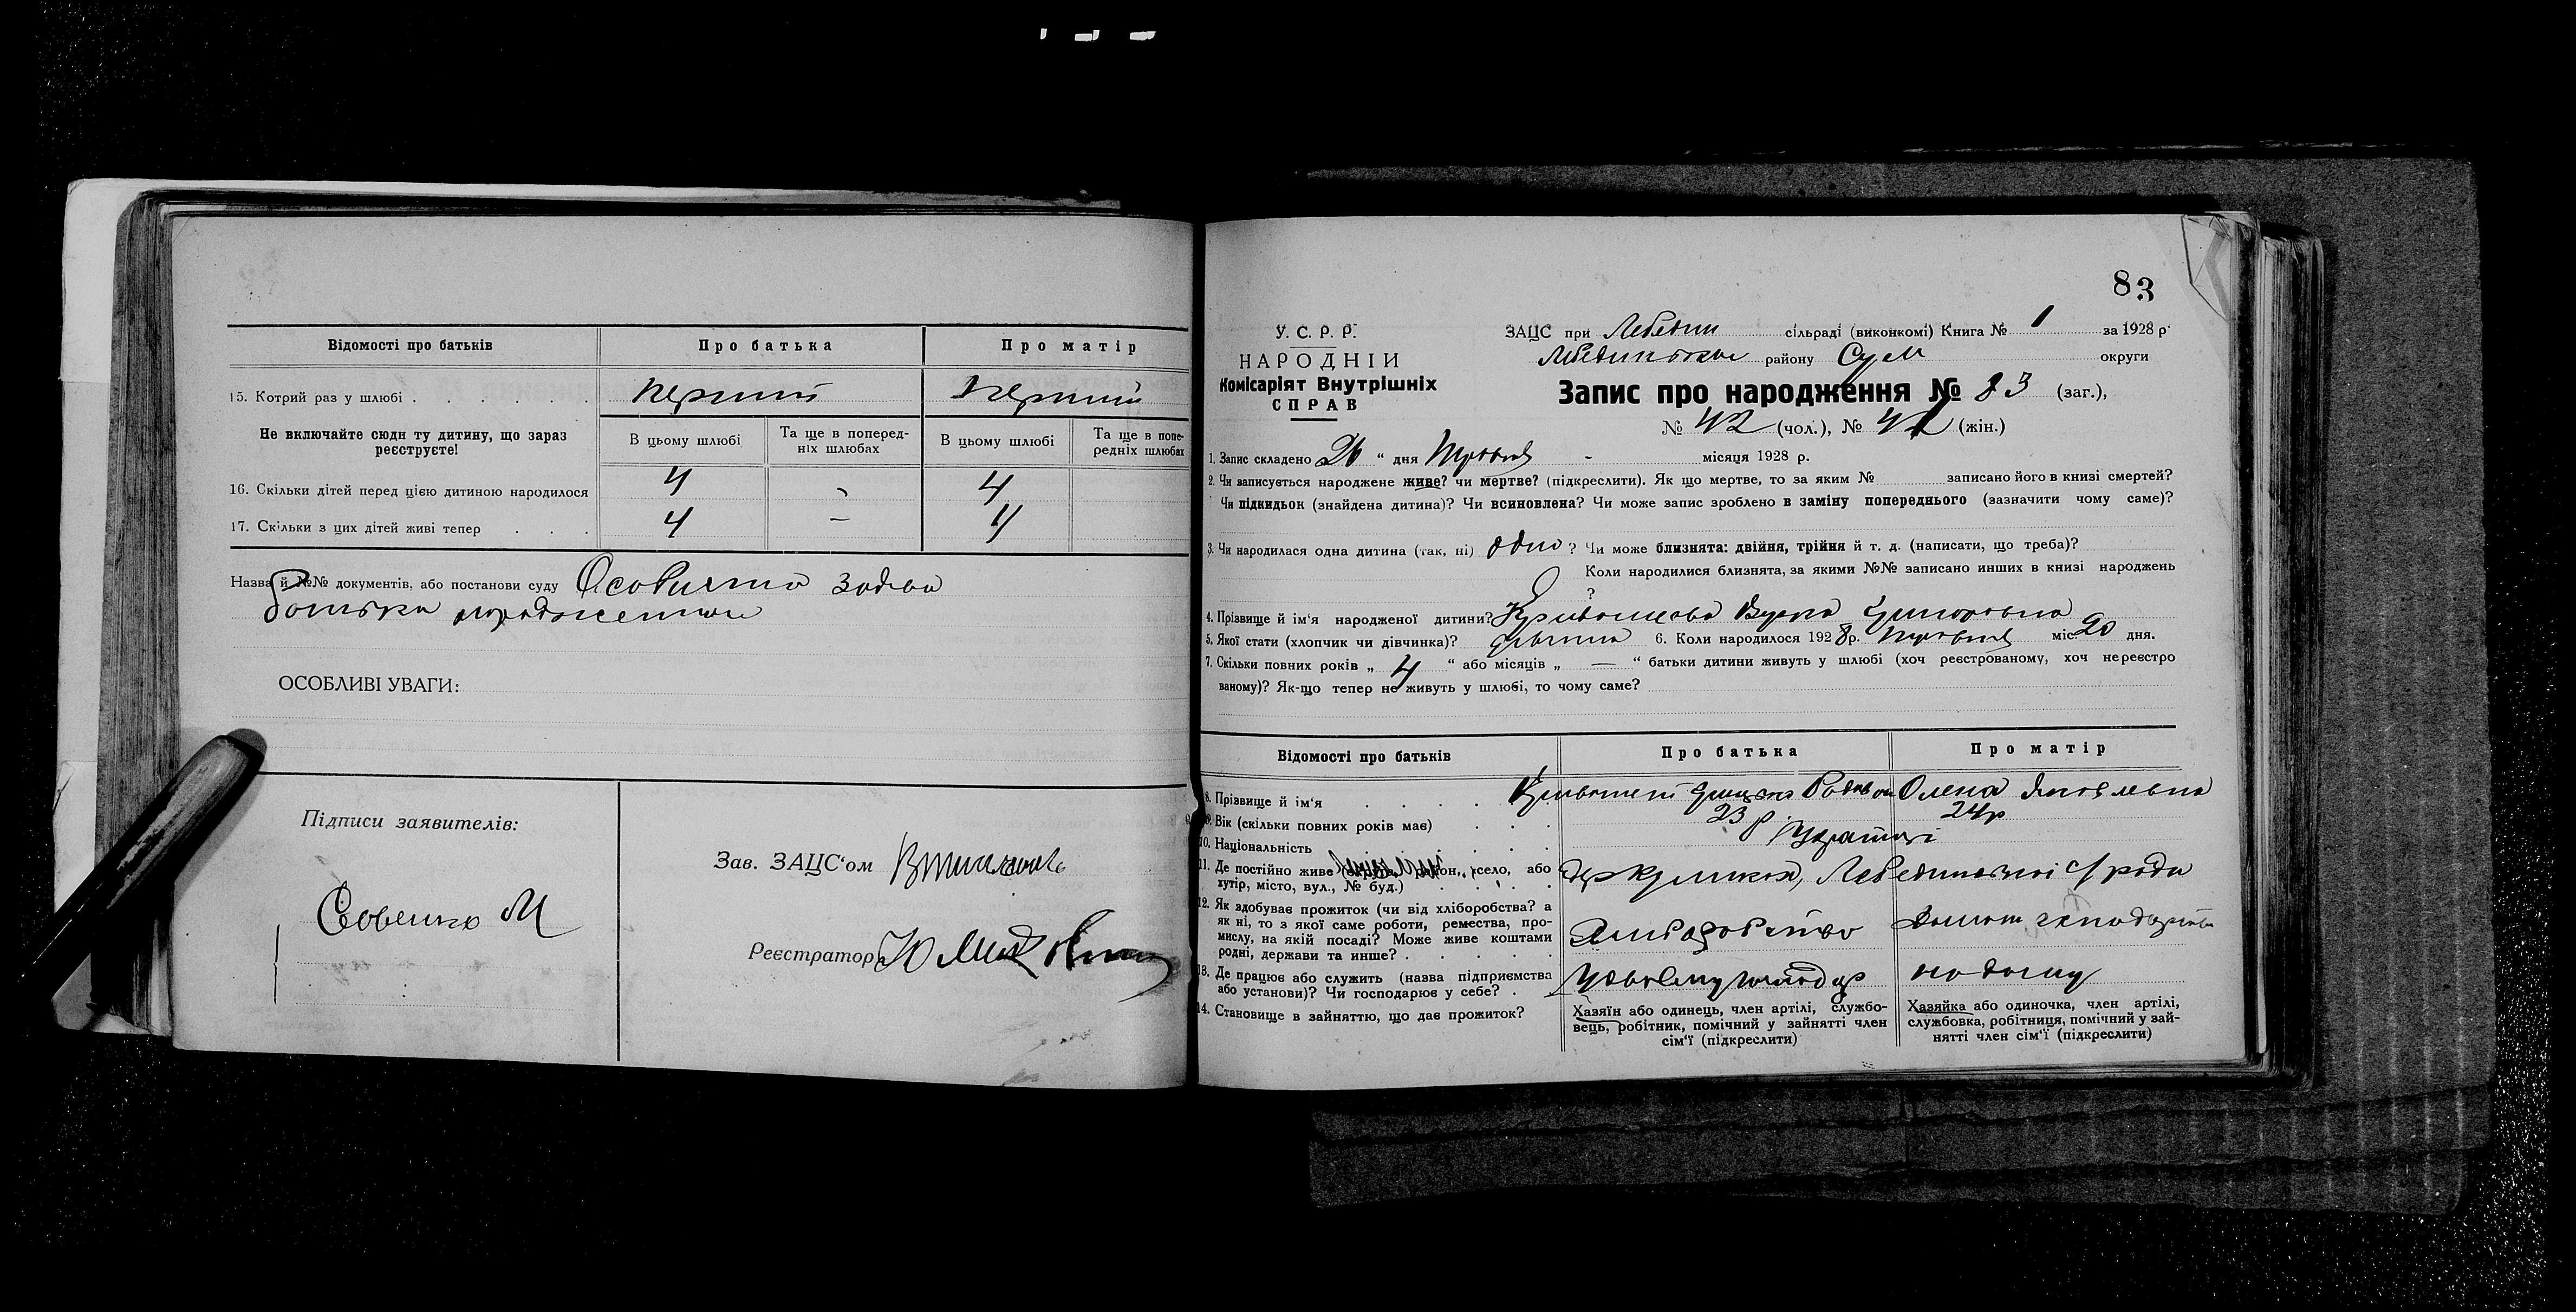 Відомості про батьків Про батька Про матір
15. Котрий раз у шлюбі . . . . . . . перший перший
Не включайте сюди ту дитину, що зараз реєструєте!
В цьому шлюбі Та ще в поперед-ніх шлюбах В цьому шлюбі Та ще в попе-редніх шлюбах
16. Скільки дітей перед цією дитиною народилося 4 - 4
17. Скільки з цих дітей живі тепер . . . 4 — 4
Назва й №№ документів, або постанови суду Особиста заява
батька
ОСОБЛИВІ УВАГИ:
Підписи заявителів:
М
Зав. ЗАЦС'ом
Реєстратор
83
У. С. Р. Р.
НАРОДНІЙ
Комісаріят Внутрішніх
СПРАВ
ЗАЦС при Лебедин сільраді (виконкомі) Книга № 1 за 1928 р.
району Сум округи
Запис про народження № 83 (заг.),
№ 42 (чол.), № 41 (жін.)
1. Запис складено 26 " дня Травня - місяця 1928 р.
2. Чи записується народжене живе? чи мертве? (підкреслити). Як що мертве, то за яким № записано його в книзі смертей?
Чи підкидьок (знайдена дитина)? Чи всиновлена? Чи може запис зроблено в заміну попереднього (зазначити чому саме)?
3. Чи народилася одна дитина (так, ні) одна ? Чи може близнята: двійня, трійня й т. д. (написати, що треба)?
Коли народилися близнята, за якими №№ записано инших в книзі народжень
?
4. Прізвище й ім'я народженої дитини?
5. Якої стати (хлопчик чи дівчинка)? 6. Коли народилося 1928р. Травня міс. 20 дня.
7. Скільки повних років „ 4 " або місяців „ — " батьки дитини живуть у шлюбі (хоч реєстрованому, хоч нереєстро
ваному)? Як-що тепер не живуть у шлюбі, то чому саме?
Відомості про батьків Про батька Про матір
8. Прізвище й ім'я . . . . Олена Яковлевна
9. Вік (скільки повних років має) . . . 23 р. 24 р
10. Національність . . . . Українці
11. Де постійно живе (округа, район, село, або
хутір, місто, вул., № буд.) . . . . Лебединської с/ради
12. Як здобуває прожиток (чи від хліборобства? а
як ні, то з якої саме роботи, ремества, про-
мислу, на якій посаді? Може живе коштами
родні, держави та инше? . . . . . Хліборобство
13. Де працює або служить (назва підприємства
або установи)? Чи господарює у себе? . на дому
14. Становище в зайняттю, що дає прожиток?
Хазяїн або одинець, член артілі, службо-
вець, робітник, помічний у зайнятті член
сім'ї (підкреслити)
Хазяйка або одиночка, член артілі,
службовка, робітниця, помічний у зай-
нятті член сім'ї (підкреслити)